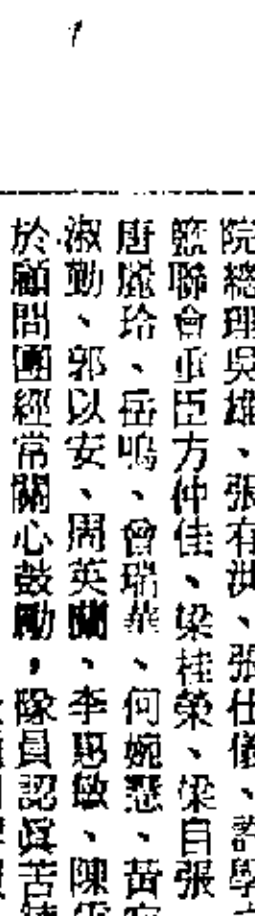 院總理吳雄、張有洪、張仕儀、許學
聯會重臣方仲佳、梁桂榮、梁自張
唐麗玲、岳鳴、曾瑞華、何婉慧、黃
淑勤、郭以安、周英蘭、李惠敏、陳
於顧問團經常關心鼓勵，隊員認眞苦